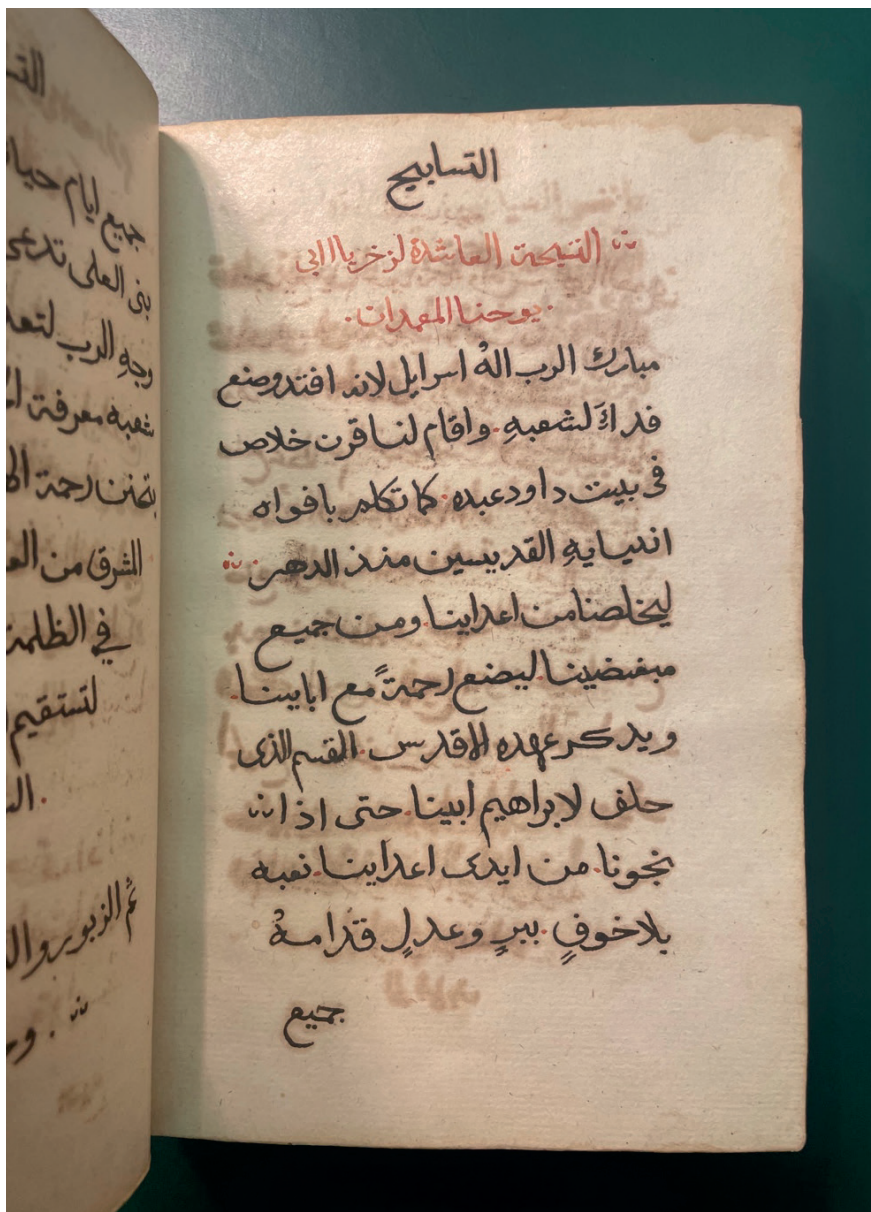 التسابيح
التسبحة العاشرة لزخريا ابي
يوحنا المعمدان
مبارك الرب اله اسرايل لانه افتقد وصنع
فداءً لشعبهِ. واقام لنا قرن خلاص
في بيت داود عبده. كما تكلم بافواه
انبيايهِ القديسين منذ الدهر
ليخلصنا من اعداينا ومن جميع
مبغضينا. ليصنع رحمةً مع اباينا.
ويدكر عهده الاقدس. القسم الذى
حلف لابراهيم ابينا. حتى اذا
نجونا. من ايدى اعداينا. نعبده
بلا خوفٍ. ببرٍ وعدلٍ قدامهُ
جميع
جميع ايام
بنى العلى تدعى
وجهِ الرب
شعبه معرفة
بتحنن رحمة
المشرق من
في الظلمة
لتستقيم
ثم الزبور